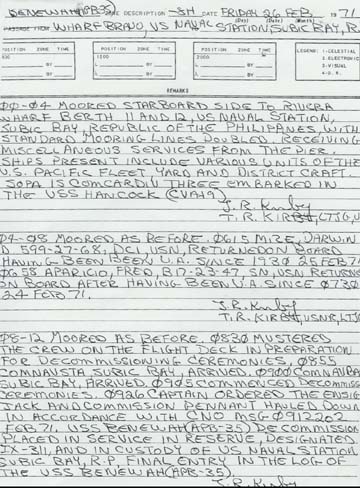 BENEWAH (APB-35) TIME DESCRIPTION -8H DATE FRIDAY 26 FEB 1971
(Day) (Date) (Month)
PASSAGE FROM WHARF BRAVO, US NAVAL STATION, SUBIC BAY, R.
POSITION ZONE TIME POSITION ZONE TIME POSITION ZONE TIME LEGEND: 1-CELESTIAL
800 1200 2000 2-ELECTRONIC
BY BY BY 3-VISUAL
BY BY BY 4-D. R.
REMARKS
00-04 MOORED STARBOARD SIDE TO RIVERA
WHARF BERTH 11 AND 12, US NAVAL STATION,
SUBIC BAY, REPUBLIC OF THE PHILIPINES, WITH
STANDARD MOORING LINES DOUBLED. RECEIVING
MISCELANEOUS SERVICES FROM THE PIER.
SHIPS PRESENT INCLUDE VARIOUS UNITS OF THE
U.S. PACIFIC FLEET, YARD AND DISTRICT CRAFT.
SOPA IS COMCARDIV THREE EMBARKED IN
THE USS HANCOCK (CVA19)
T.R. Kirby
T.R. KIRBY, LTJG, U
04-08 MOORED AS BEFORE. 0615 MIZE, DARWIN
D. 599-37-68, DC1, USN, RETURNED ON BOARD
HAVING BEEN BEEN U.A. SINCE 1930 25 FEB 71
0658 APARICIO, FRED, B17-23-47, SN, USN RETURN
ON BOARD AFTER HAVING BEEN U.A. SINCE 0730
24 FEB 71.
T.R. Kirby
T.R. KIRBY, USNR, LTJG
08-12 MOORED AS BEFORE. 0830 MUSTERED
THE CREW ON THE FLIGHT DECK IN PREPARATION
FOR DECOMMISSIONING CEREMONIES. 0855
COMNAVSTA SUBIC BAY, ARRIVED. 0900 COMNAVBA
SUBIC BAY, ARRIVED. 0905 COMMENCED DECOMMISS
CEREMONIES. 0926 CAPTAIN ORDERED THE ENSIG
JACK AND COMMISSION PENNANT HAULED DOWN
IN ACCORDANCE WITH CNO MSG 091220Z
FEB 71. USS BENEWAH (APB-35) DECOMMISSION
PLACED IN SERVICE IN RESERVE, DESIGNATED
IX-311, AND IN CUSTODY OF US NAVAL STATION,
SUBIC BAY, R.P. FINAL ENTRY IN THE LOG OF
THE USS BENEWAH (APB-35).
T.R. Kirby